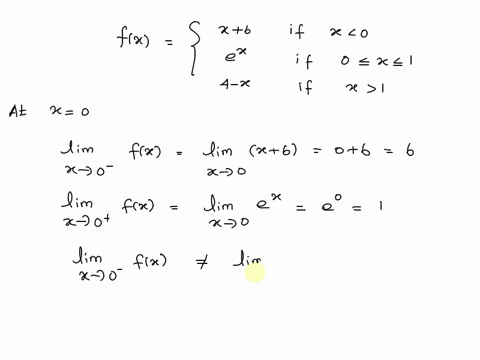 x+6 if x < 0
f(x) = { e^x if 0 ≤ x ≤ 1
4-x if x > 1
At x = 0
lim x→0⁻ f(x) = lim x→0 (x+6) = 0+6 = 6
lim x→0⁺ f(x) = lim x→0 e^x = e^0 = 1
lim x→0⁻ f(x) ≠ lim